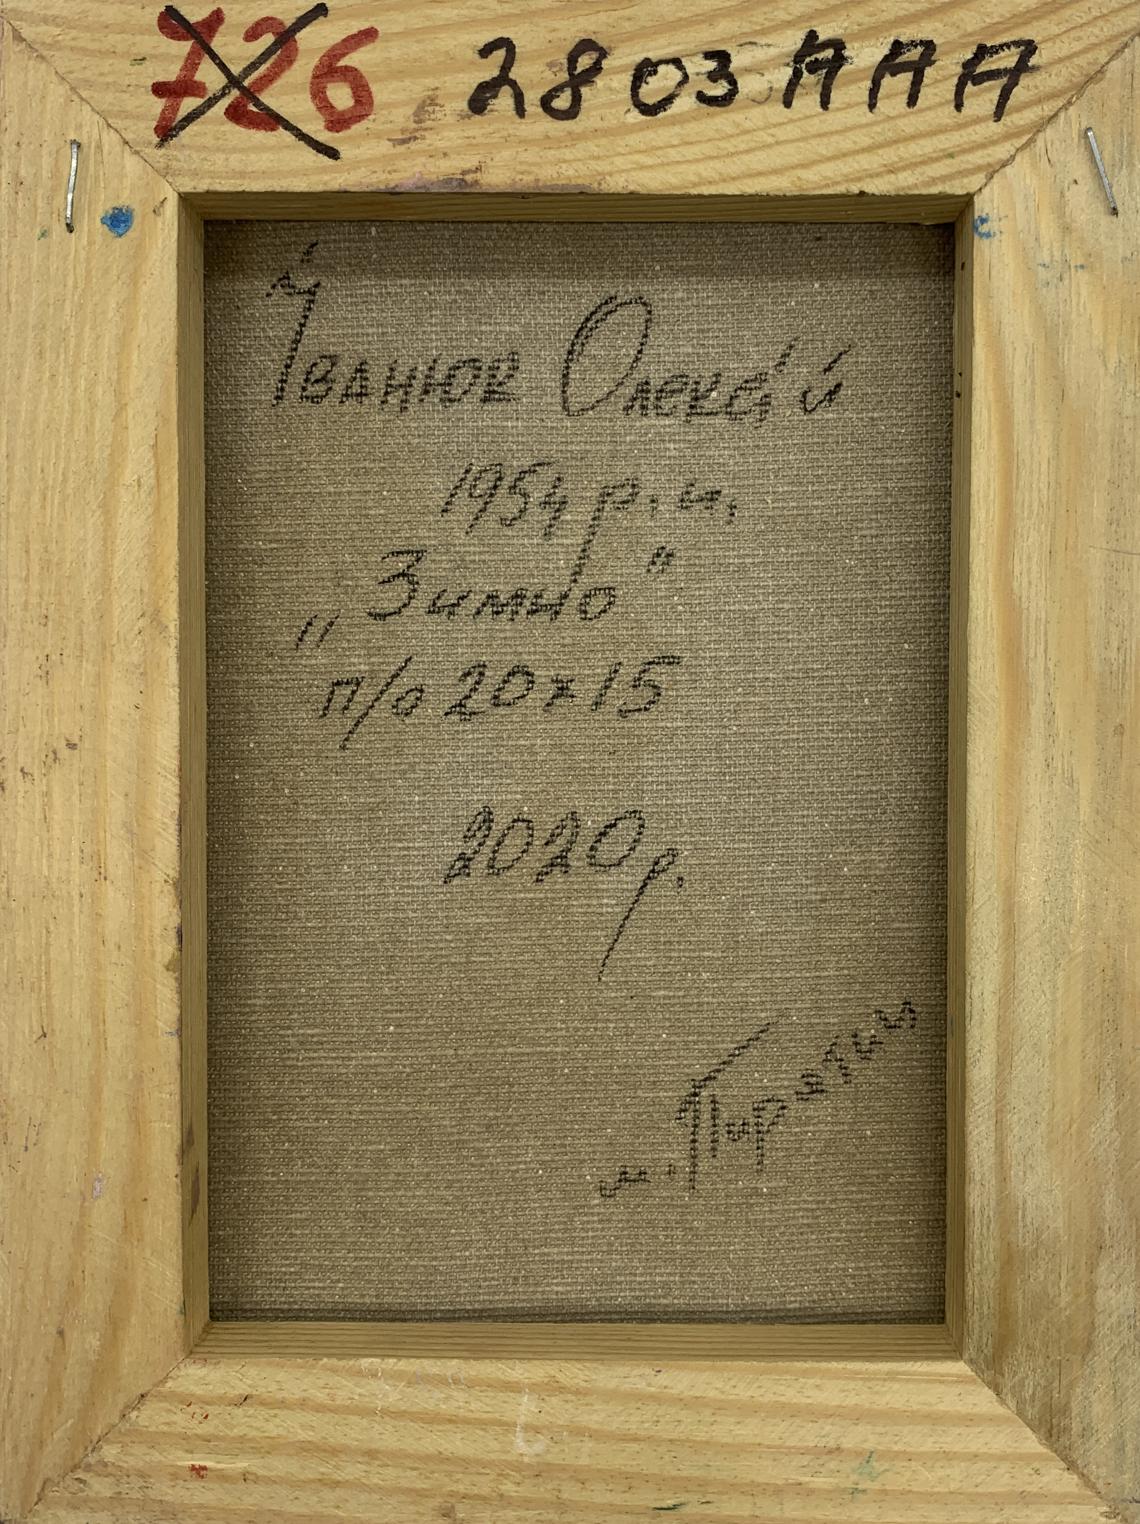 726 2803 AAA
Іванюк Олексій
1954 р.н.
„Зимно"
п/о 20×15
2020 р.
м. Пирятин